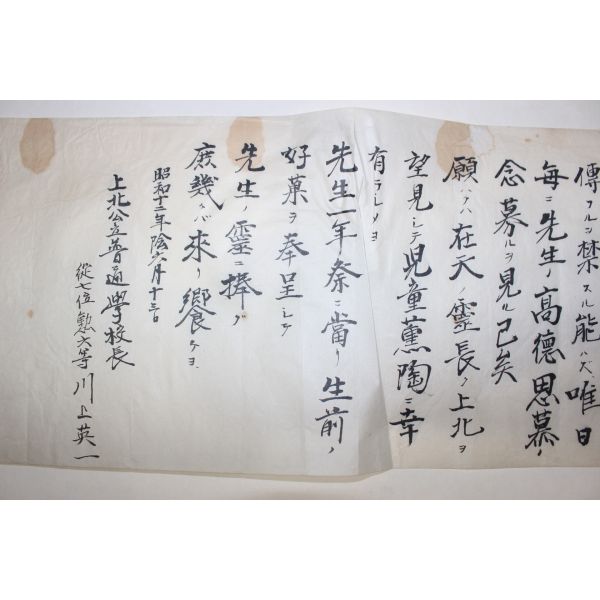 傳フルニ禁スル能ハズ唯日
每ニ先生ノ高德思慕ノ
念募ルヲ見ル已矣
願ハクハ在天ノ靈長ク上北ヲ
望見シテ児童薰陶ニ幸
有ラシメヨ
先生一年祭ニ當リ生前ノ
好菓ヲ奉呈シテ
先生ノ靈ニ捧ク
庶幾クバ來リ饗ケヨ
昭和十二年陰六月十三日
上北公立普通學校長
從七位勲六等川上英一